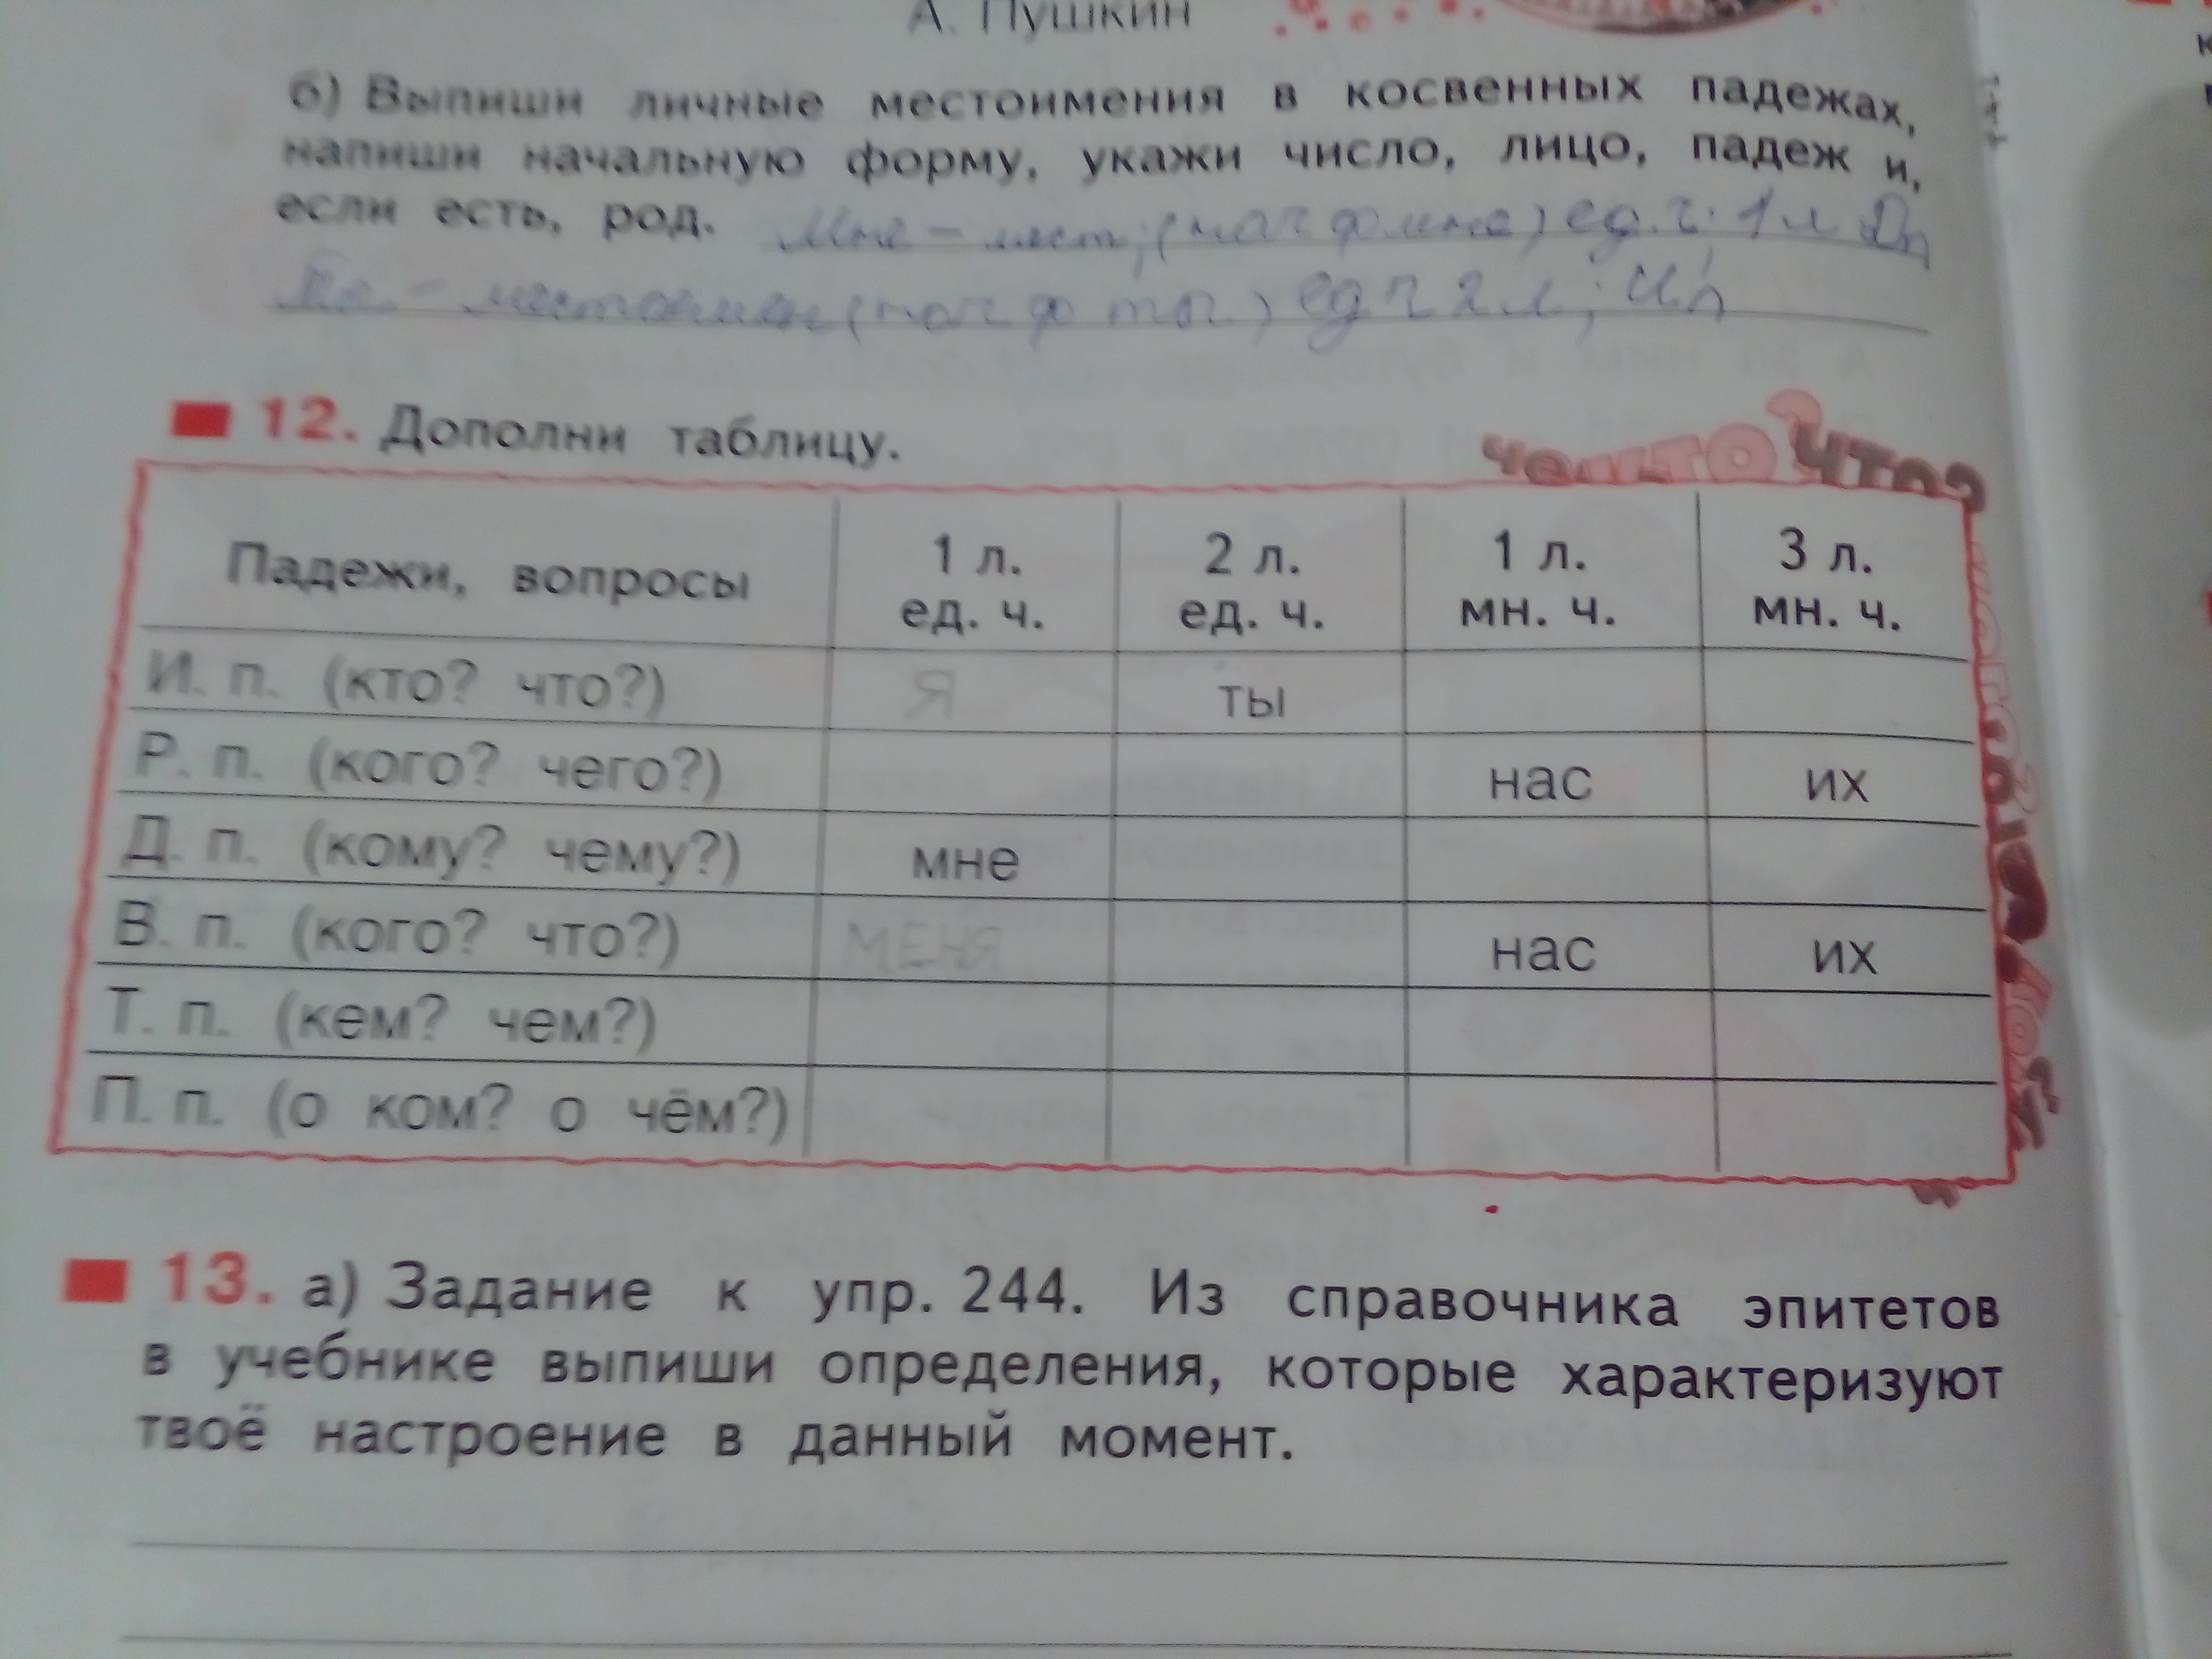 А. Пушкин
б) Выпиши личные местоимения в косвенных падежах,
напиши начальную форму, укажи число, лицо, падеж и,
если есть, род. Мне – мест, (нач ф мне) ед. ч. 1 л Дп
– местоимен (нач ф ты) ед ч 2 л, И.п
12. Дополни таблицу.
что?
Падежи, вопросы 1 л. ед. ч. 2 л. ед. ч. 1 л. мн. ч. 3 л. мн. ч.
И. п. (кто? что?) Я ты
Р. п. (кого? чего?) нас их
Д. п. (кому? чему?) мне
В. п. (кого? что?) МЕНЯ нас их
Т. п. (кем? чем?)
П. п. (о ком? о чём?)
13. а) Задание к упр. 244. Из справочника эпитетов
в учебнике выпиши определения, которые характеризуют
твоё настроение в данный момент.